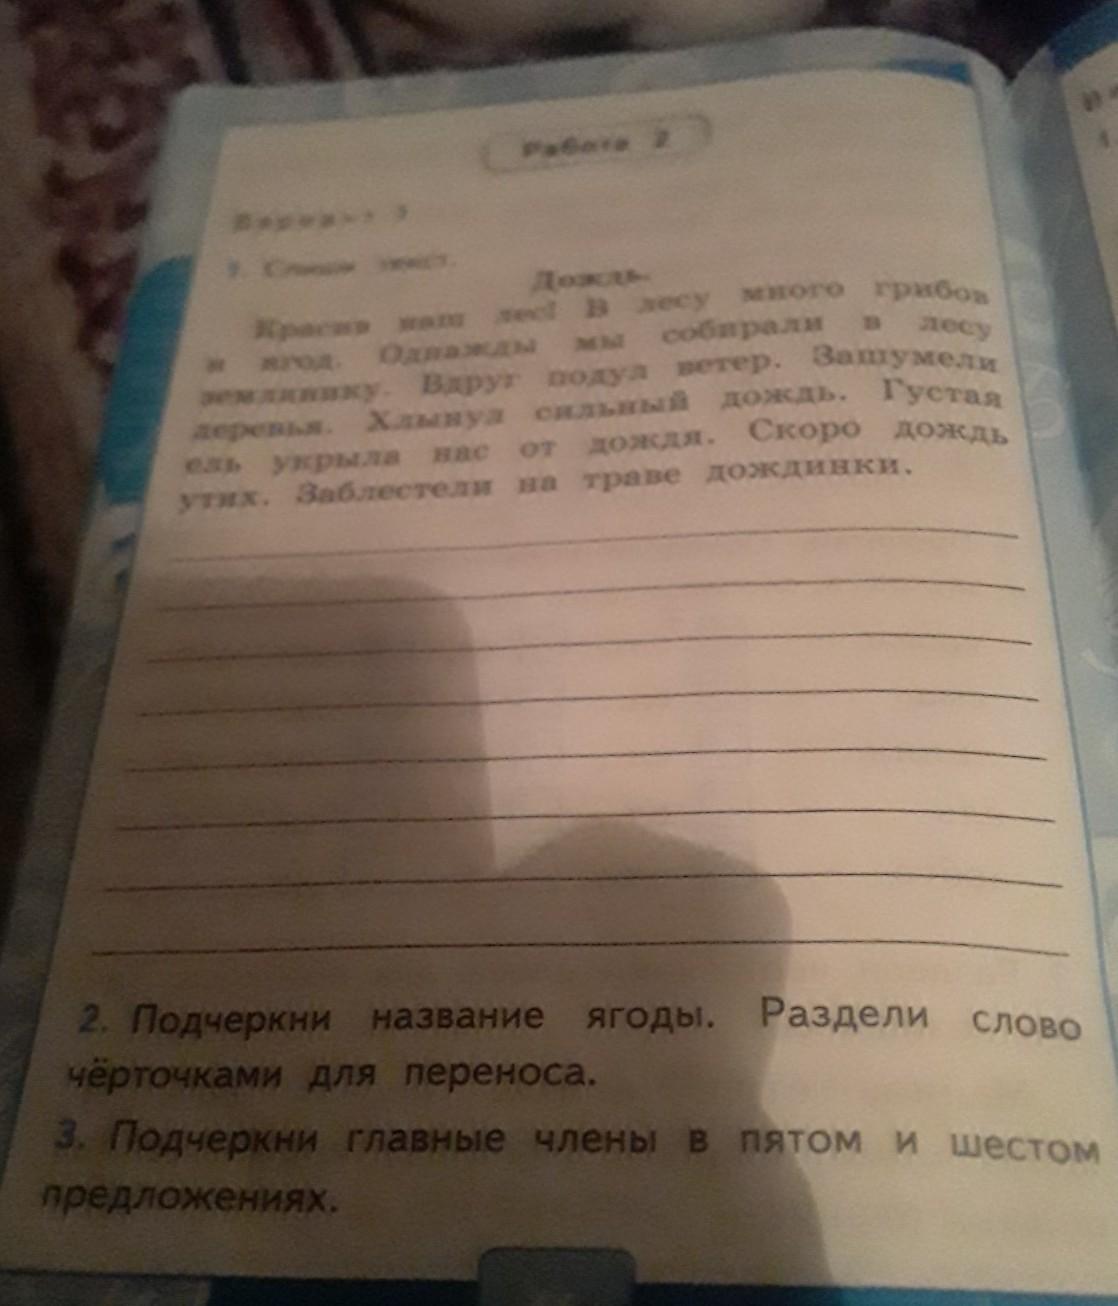 Работа 2
Вариант
1. Спиши текст.
Дождь.
Красив наш лес! В лесу много грибов
и ягод. Однажды мы собирали в лесу
землянику. Вдруг подул ветер. Зашумели
деревья. Хлынул сильный дождь. Густая
ель укрыла нас от дождя. Скоро дождь
утих. Заблестели на траве дождинки.
2. Подчеркни название ягоды. Раздели слово
чёрточками для переноса.
3. Подчеркни главные члены в пятом и шестом
предложениях.